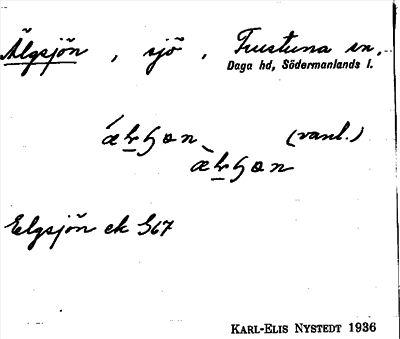 Älgsjön, sjö, Frustuna sn,
Daga hd, Södermanlands l.
(vanl.)
Elgsjön ek S67
KARL-ELIS NYSTEDT 1936